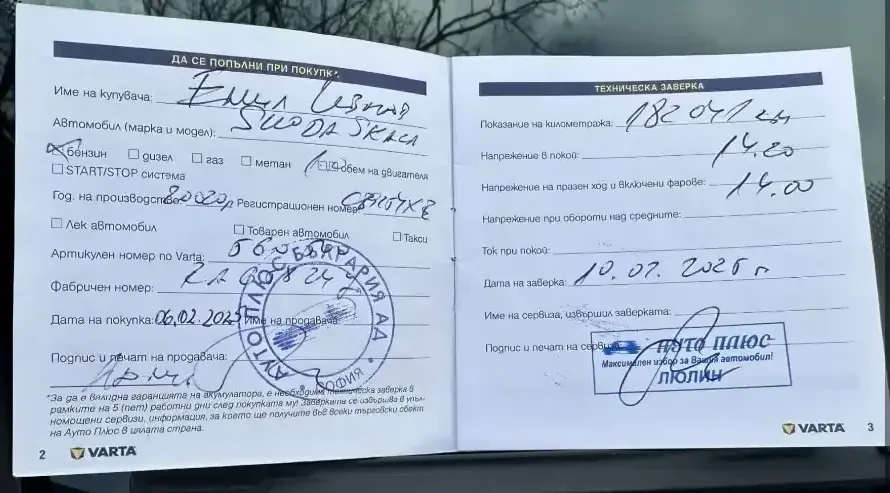 ДА СЕ ПОПЪЛНИ ПРИ ПОКУПКА
Име на купувача: Емил
Автомобил (марка и модел): SKODA SKALA
бензин дизел газ метан Обем на двигателя
START/STOP система
Год. на производство: Регистрационен номер:
Лек автомобил Товарен автомобил Такси
Артикулен номер по Varta:
Фабричен номер:
Дата на покупка: 06.02.2025 Име на продавача:
Подпис и печат на продавача:
АУТО ПЛЮС БЪЛГАРИЯ АД
СОФИЯ
*За да е валидна гаранцията на акумулатора, е необходима техническа заверка в
рамките на 5 (пет) работни дни след покупката му! Заверката се извършва в упъл-
номощени сервизи, информация, за което ще получите във всеки търговски обект
на Ауто Плюс в цялата страна.
2 VARTA
ТЕХНИЧЕСКА ЗАВЕРКА
Показание на километража: 182041 км
Напрежение в покой: 14.20
Напрежение на празен ход и включени фарове: 14.00
Напрежение при обороти над средните:
Ток при покой:
Дата на заверка: 10.02.2025 г
Име на сервиза, извършил заверката:
Подпис и печат на сервиза
АУТО ПЛЮС
Максимален избор за Вашия автомобил!
ЛЮЛИН
VARTA 3